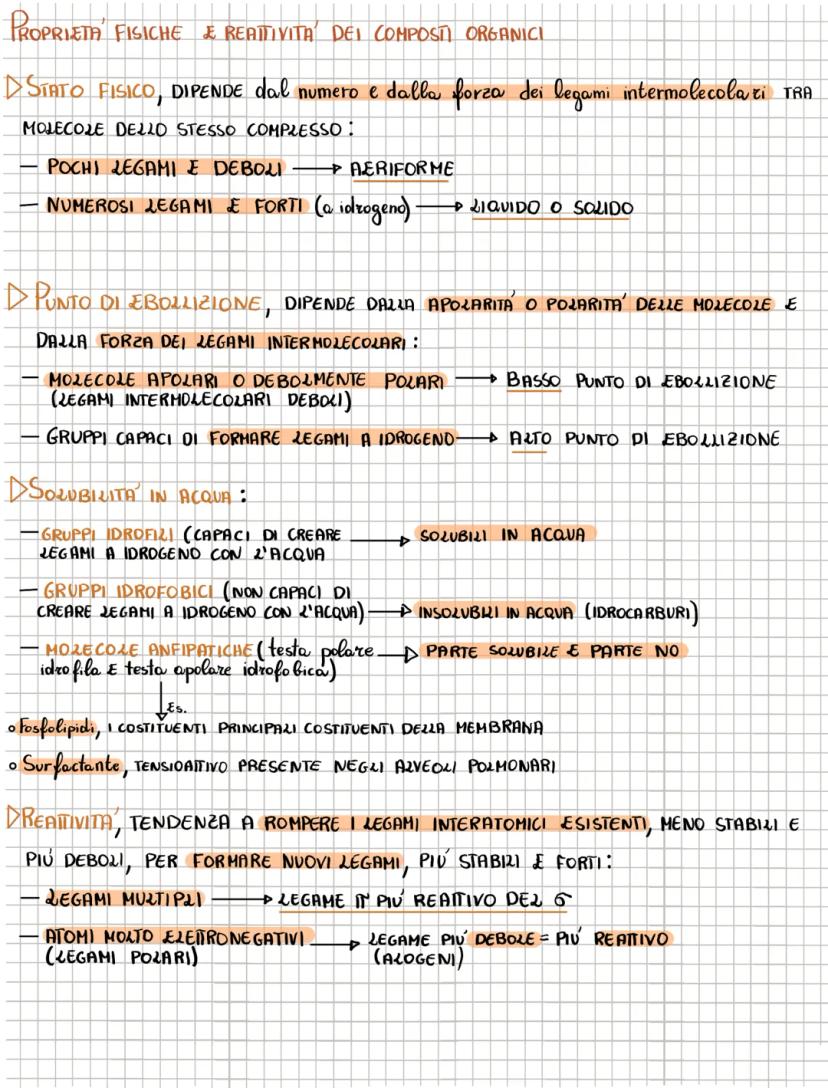 PROPRIETA' FISICHE E REATTIVITA' DEI COMPOSTI ORGANICI
▷STATO FISICO, DIPENDE dal numero e dalla forza dei legami intermolecolari TRA
MOLECOLE DELLO STESSO COMPLESSO:
— POCHI LEGAMI E DEBOLI → AERIFORME
— NUMEROSI LEGAMI E FORTI (a idrogeno) → LIQUIDO O SOLIDO
▷PUNTO DI EBOLLIZIONE, DIPENDE DALLA APOLARITA' O POLARITA' DELLE MOLECOLE E
DALLA FORZA DEI LEGAMI INTERMOLECOLARI:
— MOLECOLE APOLARI O DEBOLMENTE POLARI → BASSO PUNTO DI EBOLLIZIONE
(LEGAMI INTERMOLECOLARI DEBOLI)
— GRUPPI CAPACI DI FORMARE LEGAMI A IDROGENO → ALTO PUNTO DI EBOLLIZIONE
▷SOLUBILITA' IN ACQUA:
— GRUPPI IDROFILI (CAPACI DI CREARE → SOLUBILI IN ACQUA
LEGAMI A IDROGENO CON L'ACQUA
— GRUPPI IDROFOBICI (NON CAPACI DI
CREARE LEGAMI A IDROGENO CON L'ACQUA) → INSOLUBILI IN ACQUA (IDROCARBURI)
— MOLECOLE ANFIPATICHE (testa polare → PARTE SOLUBILE E PARTE NO
idrofila E testa apolare idrofobica)
↓ Es.
o Fosfolipidi, I COSTITUENTI PRINCIPALI COSTITUENTI DELLA MEMBRANA
o Surfactante, TENSIOATTIVO PRESENTE NEGLI ALVEOLI POLMONARI
▷REATTIVITA', TENDENZA A ROMPERE I LEGAMI INTERATOMICI ESISTENTI, MENO STABILI E
PIU' DEBOLI, PER FORMARE NUOVI LEGAMI, PIU' STABILI E FORTI:
— LEGAMI MULTIPLI → LEGAME π PIU' REATTIVO DEL σ
— ATOMI MOLTO ELETTRONEGATIVI → LEGAME PIU' DEBOLE = PIU' REATTIVO
(LEGAMI POLARI) (ALOGENI)